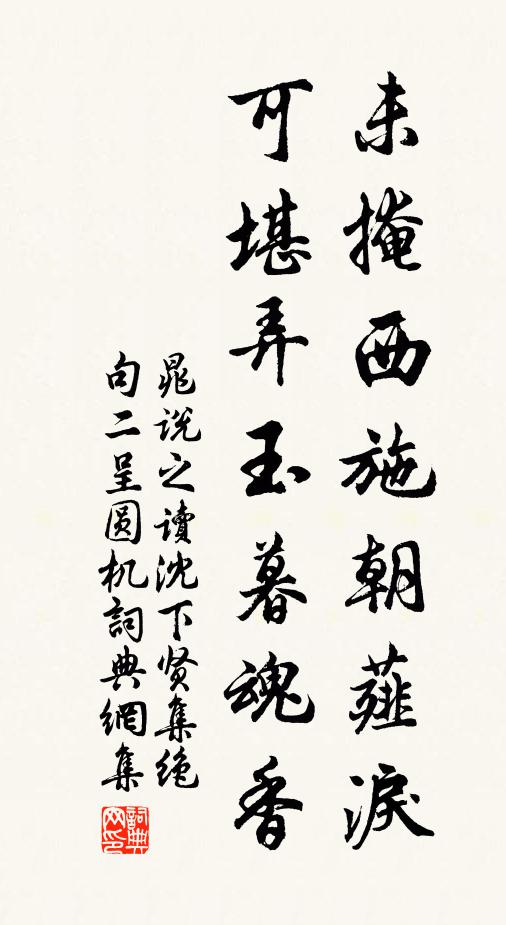 未掩西施朝薤淚
可堪弄玉暮魂香
晁说之讀沈下贤集绝
句二呈圆机詞典網集
詞典网印